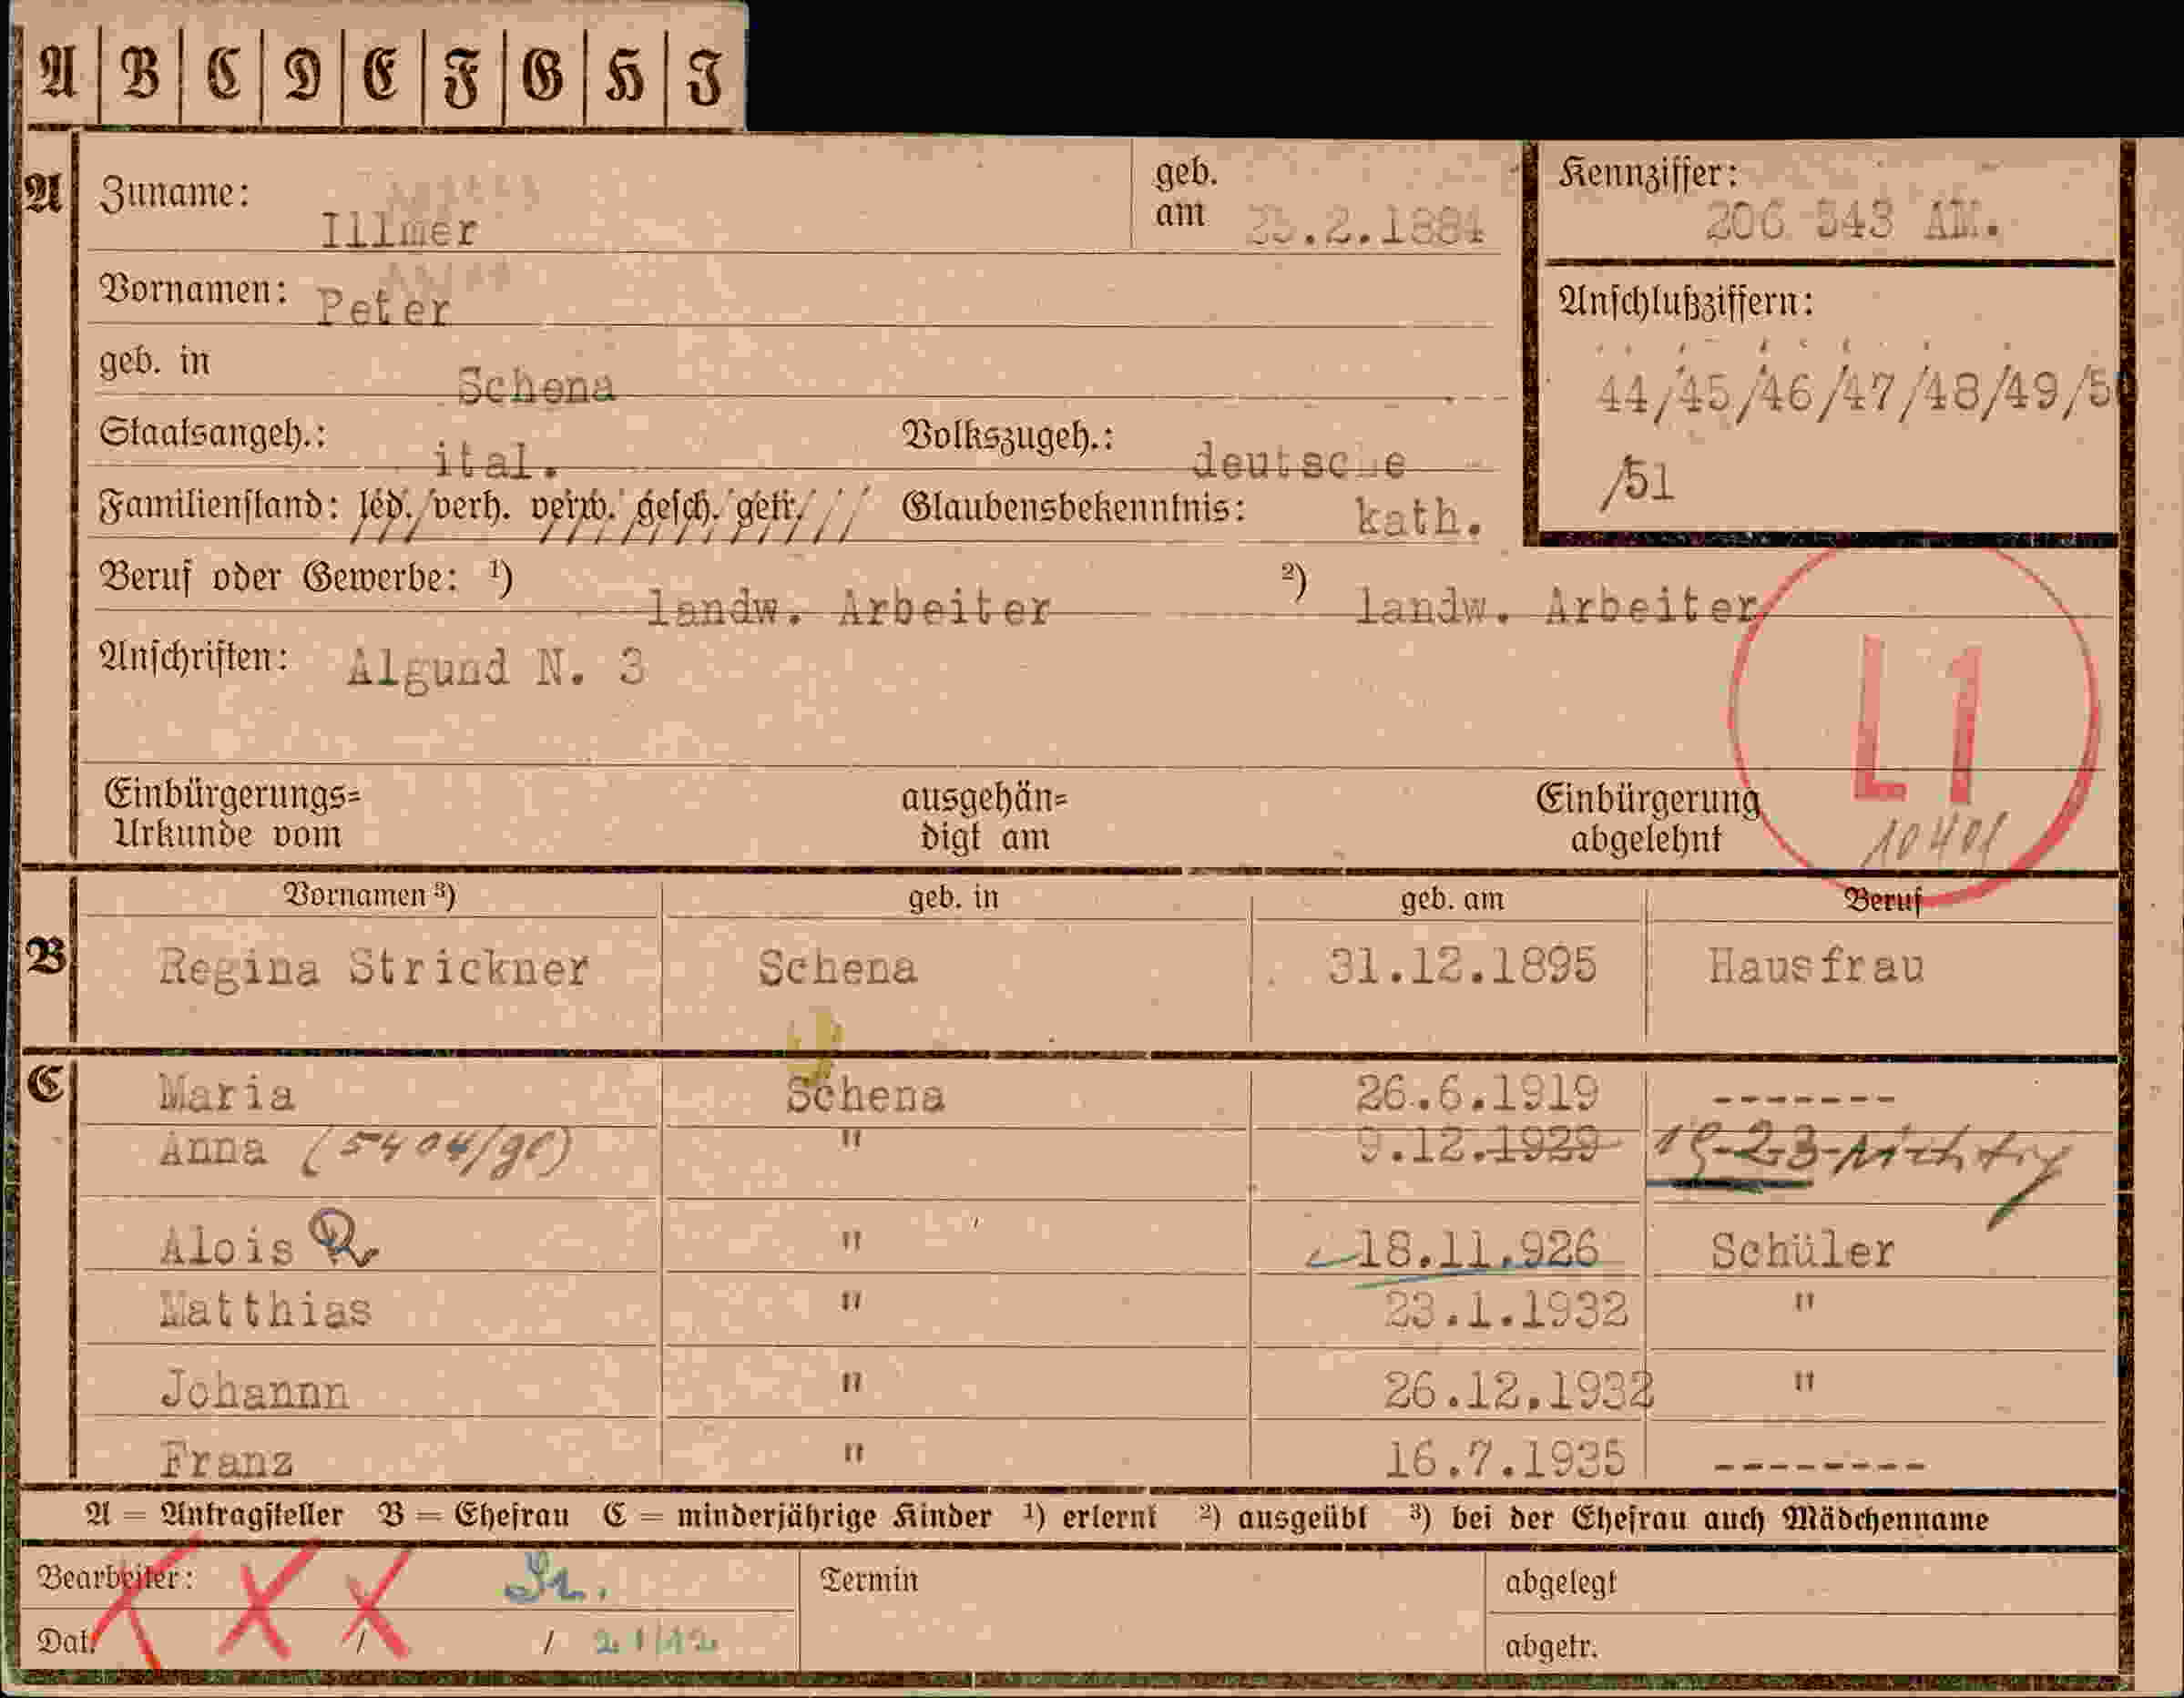 A B C D E F G H I
A Zuname: Illmer geb. am 23.2.1884 Kennziffer: 206 343 AM.
Vornamen: Peter Anschlußziffern:
geb. in Schena 44/45/46/47/48/49/50
Staatsangeh.: ital. Volkszugeh.: deutsche /51
Familienstand: led. verh. verw. gesch. getr. Glaubensbekenntnis: kath.
Beruf oder Gewerbe: 1) landw. Arbeiter 2) landw. Arbeiter
Anschriften: Algund N. 3
L1
Einbürgerungs= ausgehän= Einbürgerung
Urkunde vom digt am abgelehnt 10401
Vornamen 3) geb. in geb. am Beruf
B Regina Strickner Schena 31.12.1895 Hausfrau
C Maria Schena 26.6.1919 -------
Anna (5404/ge) " 9.12.1929 19-23-richtig
Alois " 18.11.926 Schüler
Matthias " 23.1.1932 "
Johannn " 26.12.1932 "
Franz " 16.7.1935 --------
A = Antragsteller B = Ehefrau C = minderjährige Kinder 1) erlernt 2) ausgeübt 3) bei der Ehefrau auch Mädchenname
Bearbeiter: Termin abgelegt
Dat. / / 21/12 abgetr.